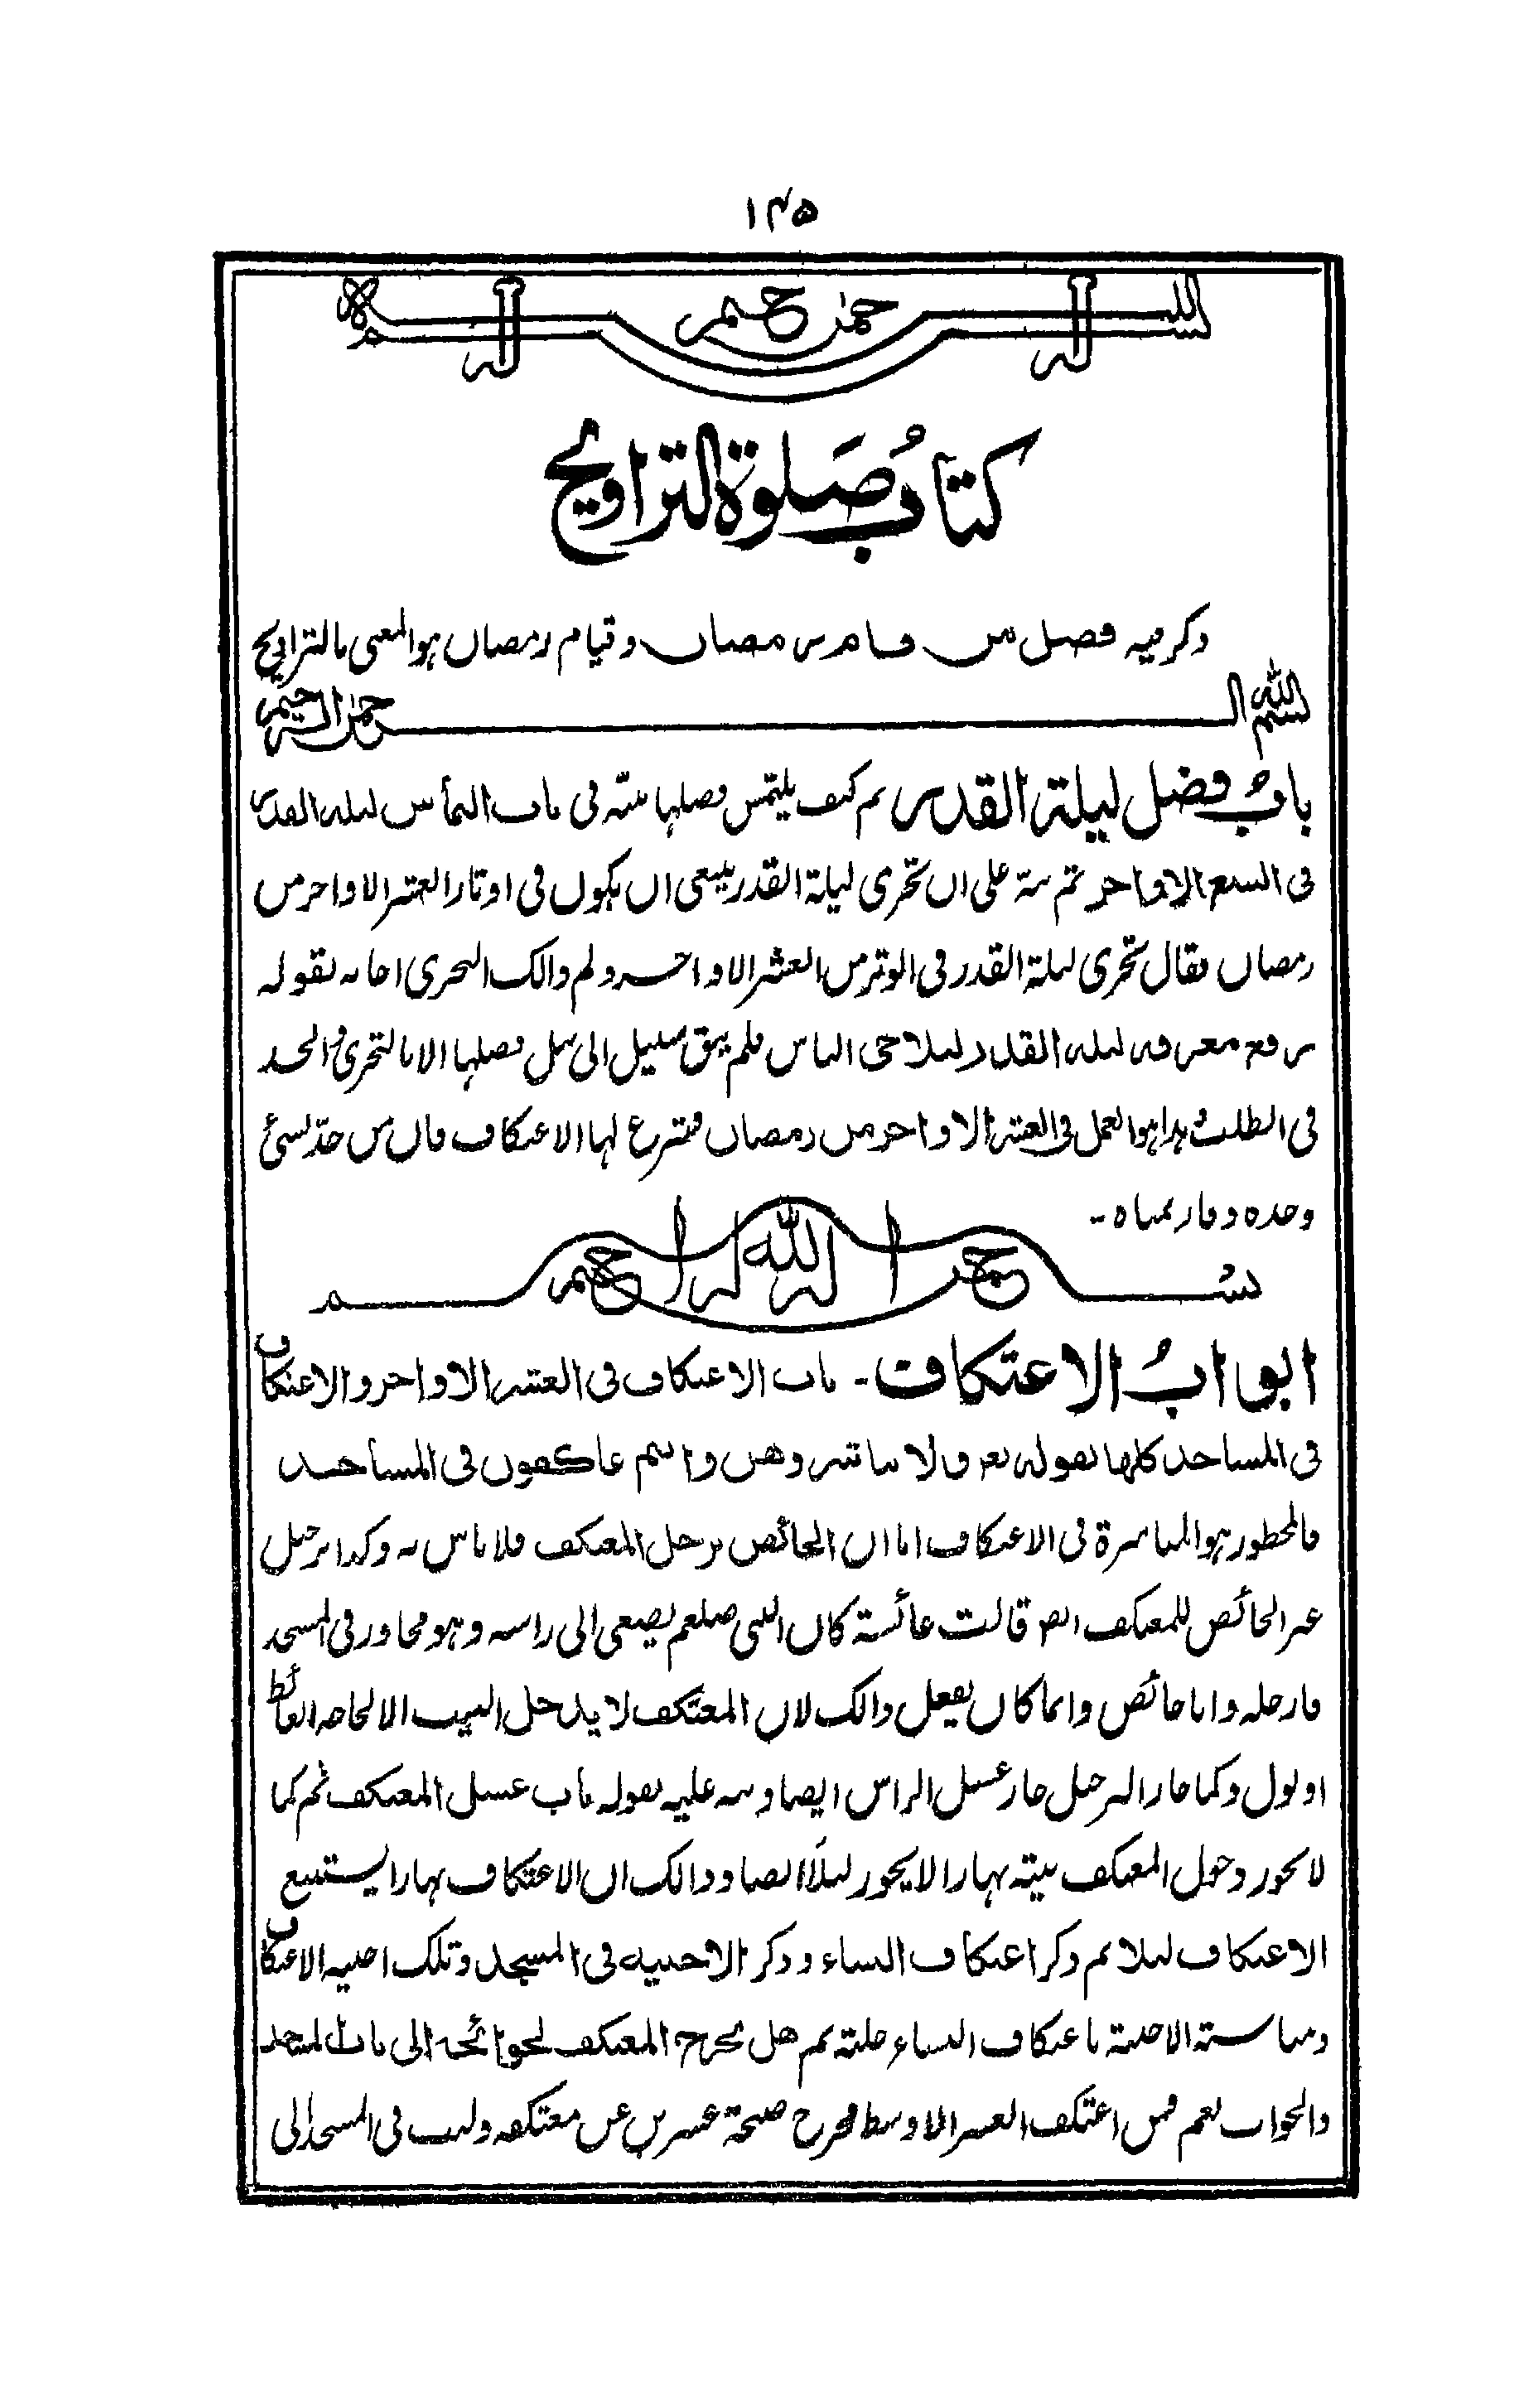 ۱۴۵
بسم الله الرحمن الرحيم
كتابُ صَلوة التراويح
ذكر فيه فضل من قام رمضان وقيام رمضان هو المعنى بالتراويح
بسم الله الرحمن الرحيم
بابُ فضل ليلة القدر ثم كيف يلتمس فضلها منه فى باب التماس ليلة القدر
فى السبع الاواخر ثم منه على ان تحرى ليلة القدر ينبغى ان يكون فى اوتار العشر الاواخر من
رمضان فقال تحرى ليلة القدر فى الوتر من العشر الاواخر ولم ذالك التحرى اجابه بقوله
رفع معرفة ليلة القدر لتلاحى الناس فلم يبق سبيل الى نيل فضلها الا بالتحرى والجد
فى الطلب وهذا هو العمل فى العشر الاواخر من رمضان فشرع لها الاعتكاف فان من جد لشئ
وحده وفاز بمناه -
بسم الله الرحمن الرحيم
ابوابُ الاعتكاف - باب الاعتكاف فى العشر الاواخر والاعتكاف
فى المساجد كلها لقوله تع ولا تباشروهن وانتم عاكفون فى المساجد
فالمحظور هو المباشرة فى الاعتكاف اما ان الحائض ترجل المعتكف فلا باس به وكذا ترجيل
غير الحائض للمعتكف ايضا قالت عائشة كان النبى صلعم يصغى الى راسه وهو مجاور فى المسجد
فارجله وانا حائض وانما كان يفعل ذالك لان المعتكف لا يدخل البيت الا لحاجة الغائط
او لبول وكما جاز الترجيل جاز غسل الراس ايضا ونبه عليه بقوله باب غسل المعتكف ثم كما
لا يجوز دخول المعتكف بيته نهارا لا يجوز ليلاً ايضا وذالك ان الاعتكاف نهارا يستتبع
الاعتكاف ليلا ثم ذكر اعتكاف النساء وذكر الاخبية فى المسجد وتلك اخبية الاعتكاف
ومناسبة الاخبية باعتكاف النساء جلية ثم هل يخرج المعتكف لحوائجه الى باب المسجد
والجواب نعم فمن اعتكف العشر الاوسط فخرج صبيحة عشرين عن معتكفه ولبث فى المسجد الى